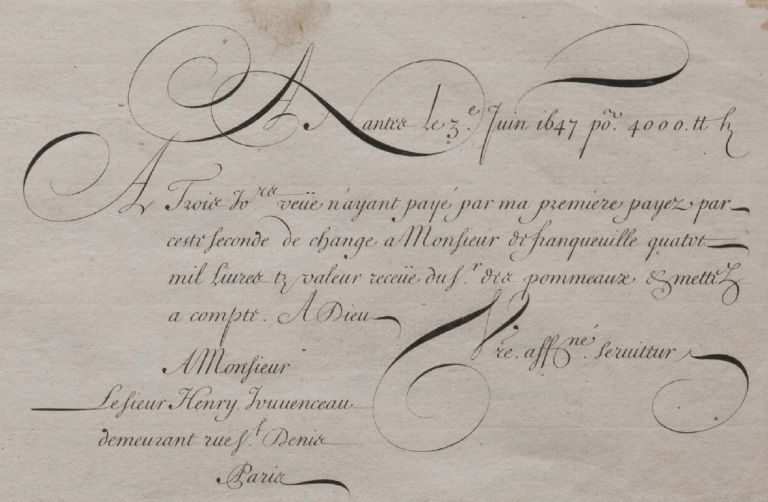 A Nantes Le 3.e Juin 1647 po.r 4000. tt tz
A Trois Jo.rs veüe n'ayant payé par ma premiere payez par
ceste seconde de change a Monsieur de franqueuille quatre
mil Liures tz valeur receüe du s.r des pommeaux & mettez
a compte. A Dieu
V're. aff.né seruiteur
A Monsieur
Le sieur Henry Jouuenceau
demeurant rue s.t Denis
Paris